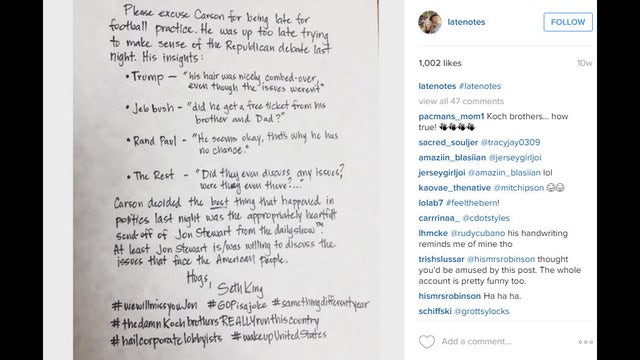 Please excuse Carson for being late for
football practice. He was up too late trying
to make sense of the Republican debate last
night. His insights:
• Trump — "his hair was nicely combed-over,
even though the issues weren't"
• Jeb bush - "did he get a free ticket from his
brother and Dad?"
• Rand Paul - "He seems okay, that's why he has
no chance."
• The Rest - "Did they even discuss any issues?
were they even there?..."
Carson decided the best thing that happened in
politics last night was the appropriately heartfelt
send-off of Jon Stewart from the dailyshow™.
At least Jon Stewart is/was willing to discuss the
issues that face the American people.
Hugs,
Seth King
#wewillmissyouJon #GOPisajoke #somethingdifferentyear
#thedamnKochbrothersREALLYrunthiscountry
#hailcorporatelobbyists #wakeupUnitedStates
latenotes
FOLLOW
1,002 likes
10w
latenotes #latenotes
view all 47 comments
pacmans_mom1 Koch brothers... how
true!
sacred_souljer @tracyjay0309
amaziin_blasiian @jerseygirljoi
jerseygirljoi @amaziin_blasiian lol
kaovae_thenative @mitchipson
lolab7 #feelthebern!
carrrinaa_ @cdotstyles
lhmcke @rudycubano his handwriting
reminds me of mine tho
trishslussar @hismrsrobinson thought
you'd be amused by this post. The whole
account is pretty funny too.
hismrsrobinson Ha ha ha.
schiffski @grottsylocks
Add a comment...